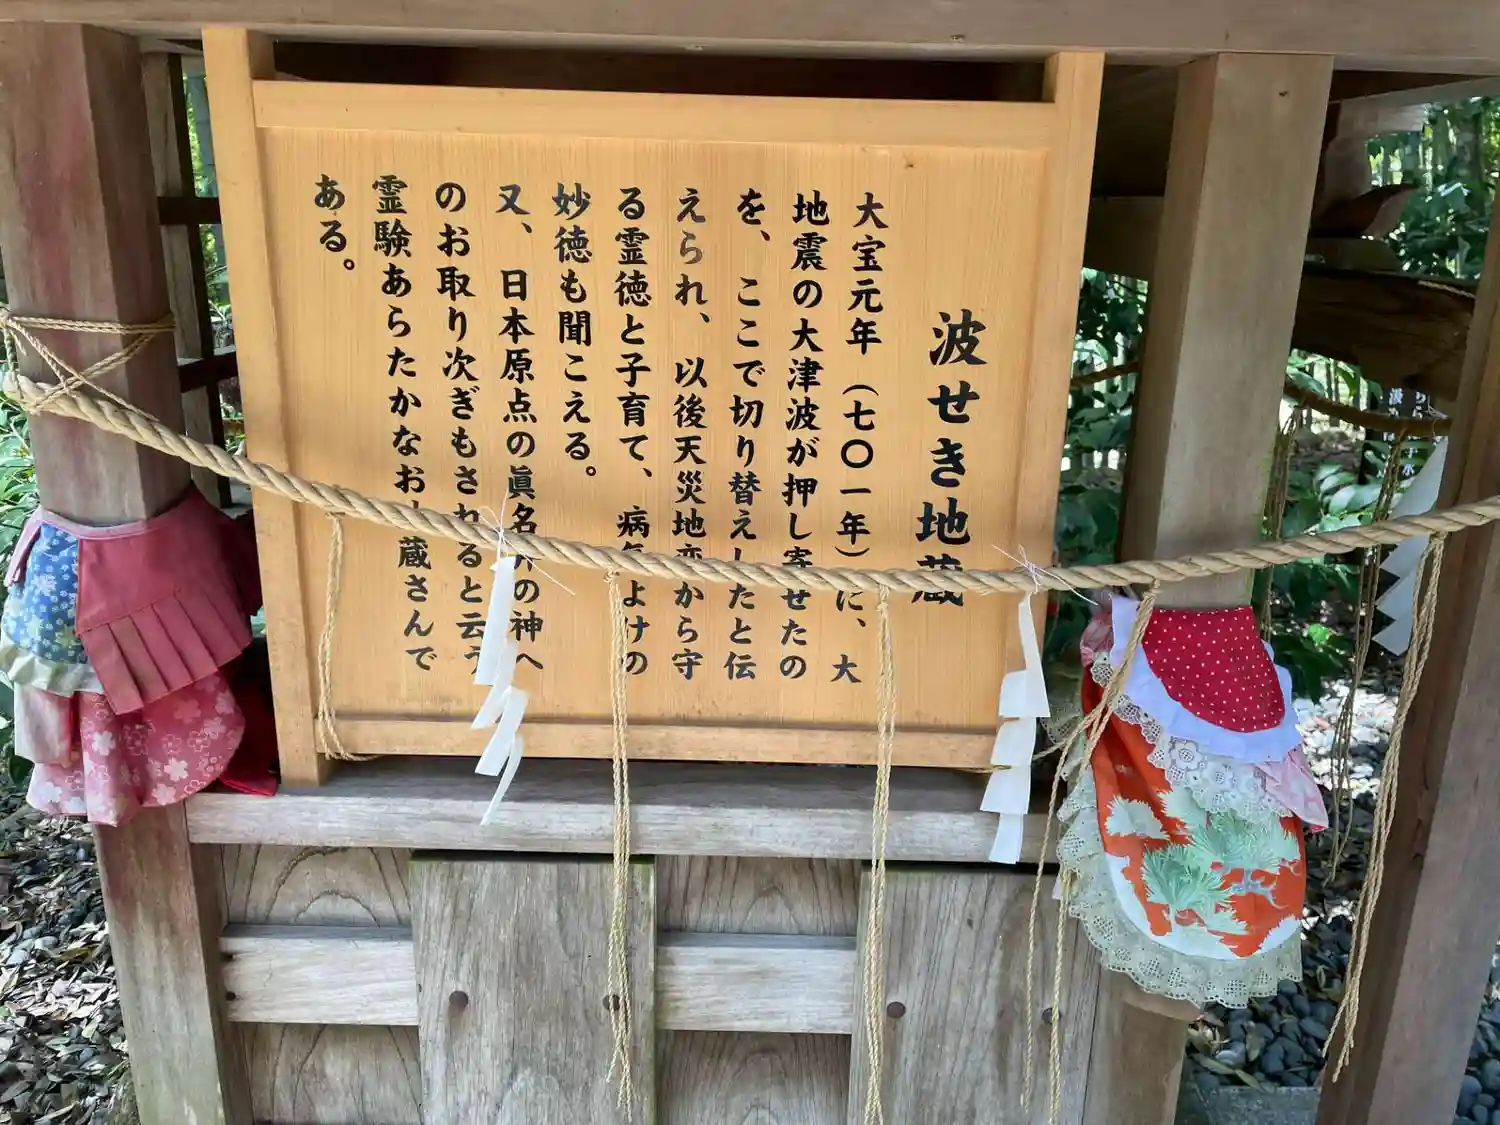 波せき地蔵
大宝元年（七〇一年）に、大
地震の大津波が押し寄せたの
を、ここで切り替えしたと伝
えられ、以後天災地変から守
る霊徳と子育て、病気よけの
妙徳も聞こえる。
又、日本原点の眞名井の神へ
のお取り次ぎもされると云う
霊験あらたかなお地蔵さんで
ある。